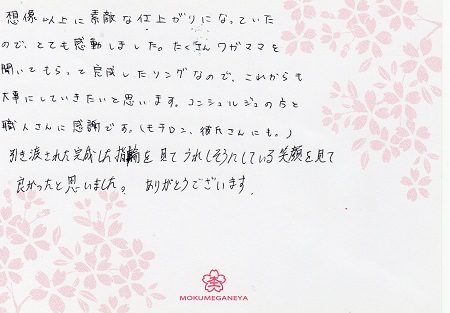 想像以上に素敵な仕上がりになっていた
ので、とても感動しました。たくさんワガママを
聞いてもらって完成したリングなので、これからも
大事にしていきたいと思います。コンシェルジュの方と
職人さんに感謝です。(モチロン、彼氏さんにも。)
引き渡された完成した指輪を見てうれしそうにしている笑顔を見て
良かったと思いました。ありがとうございます.
MOKUMEGANEYA